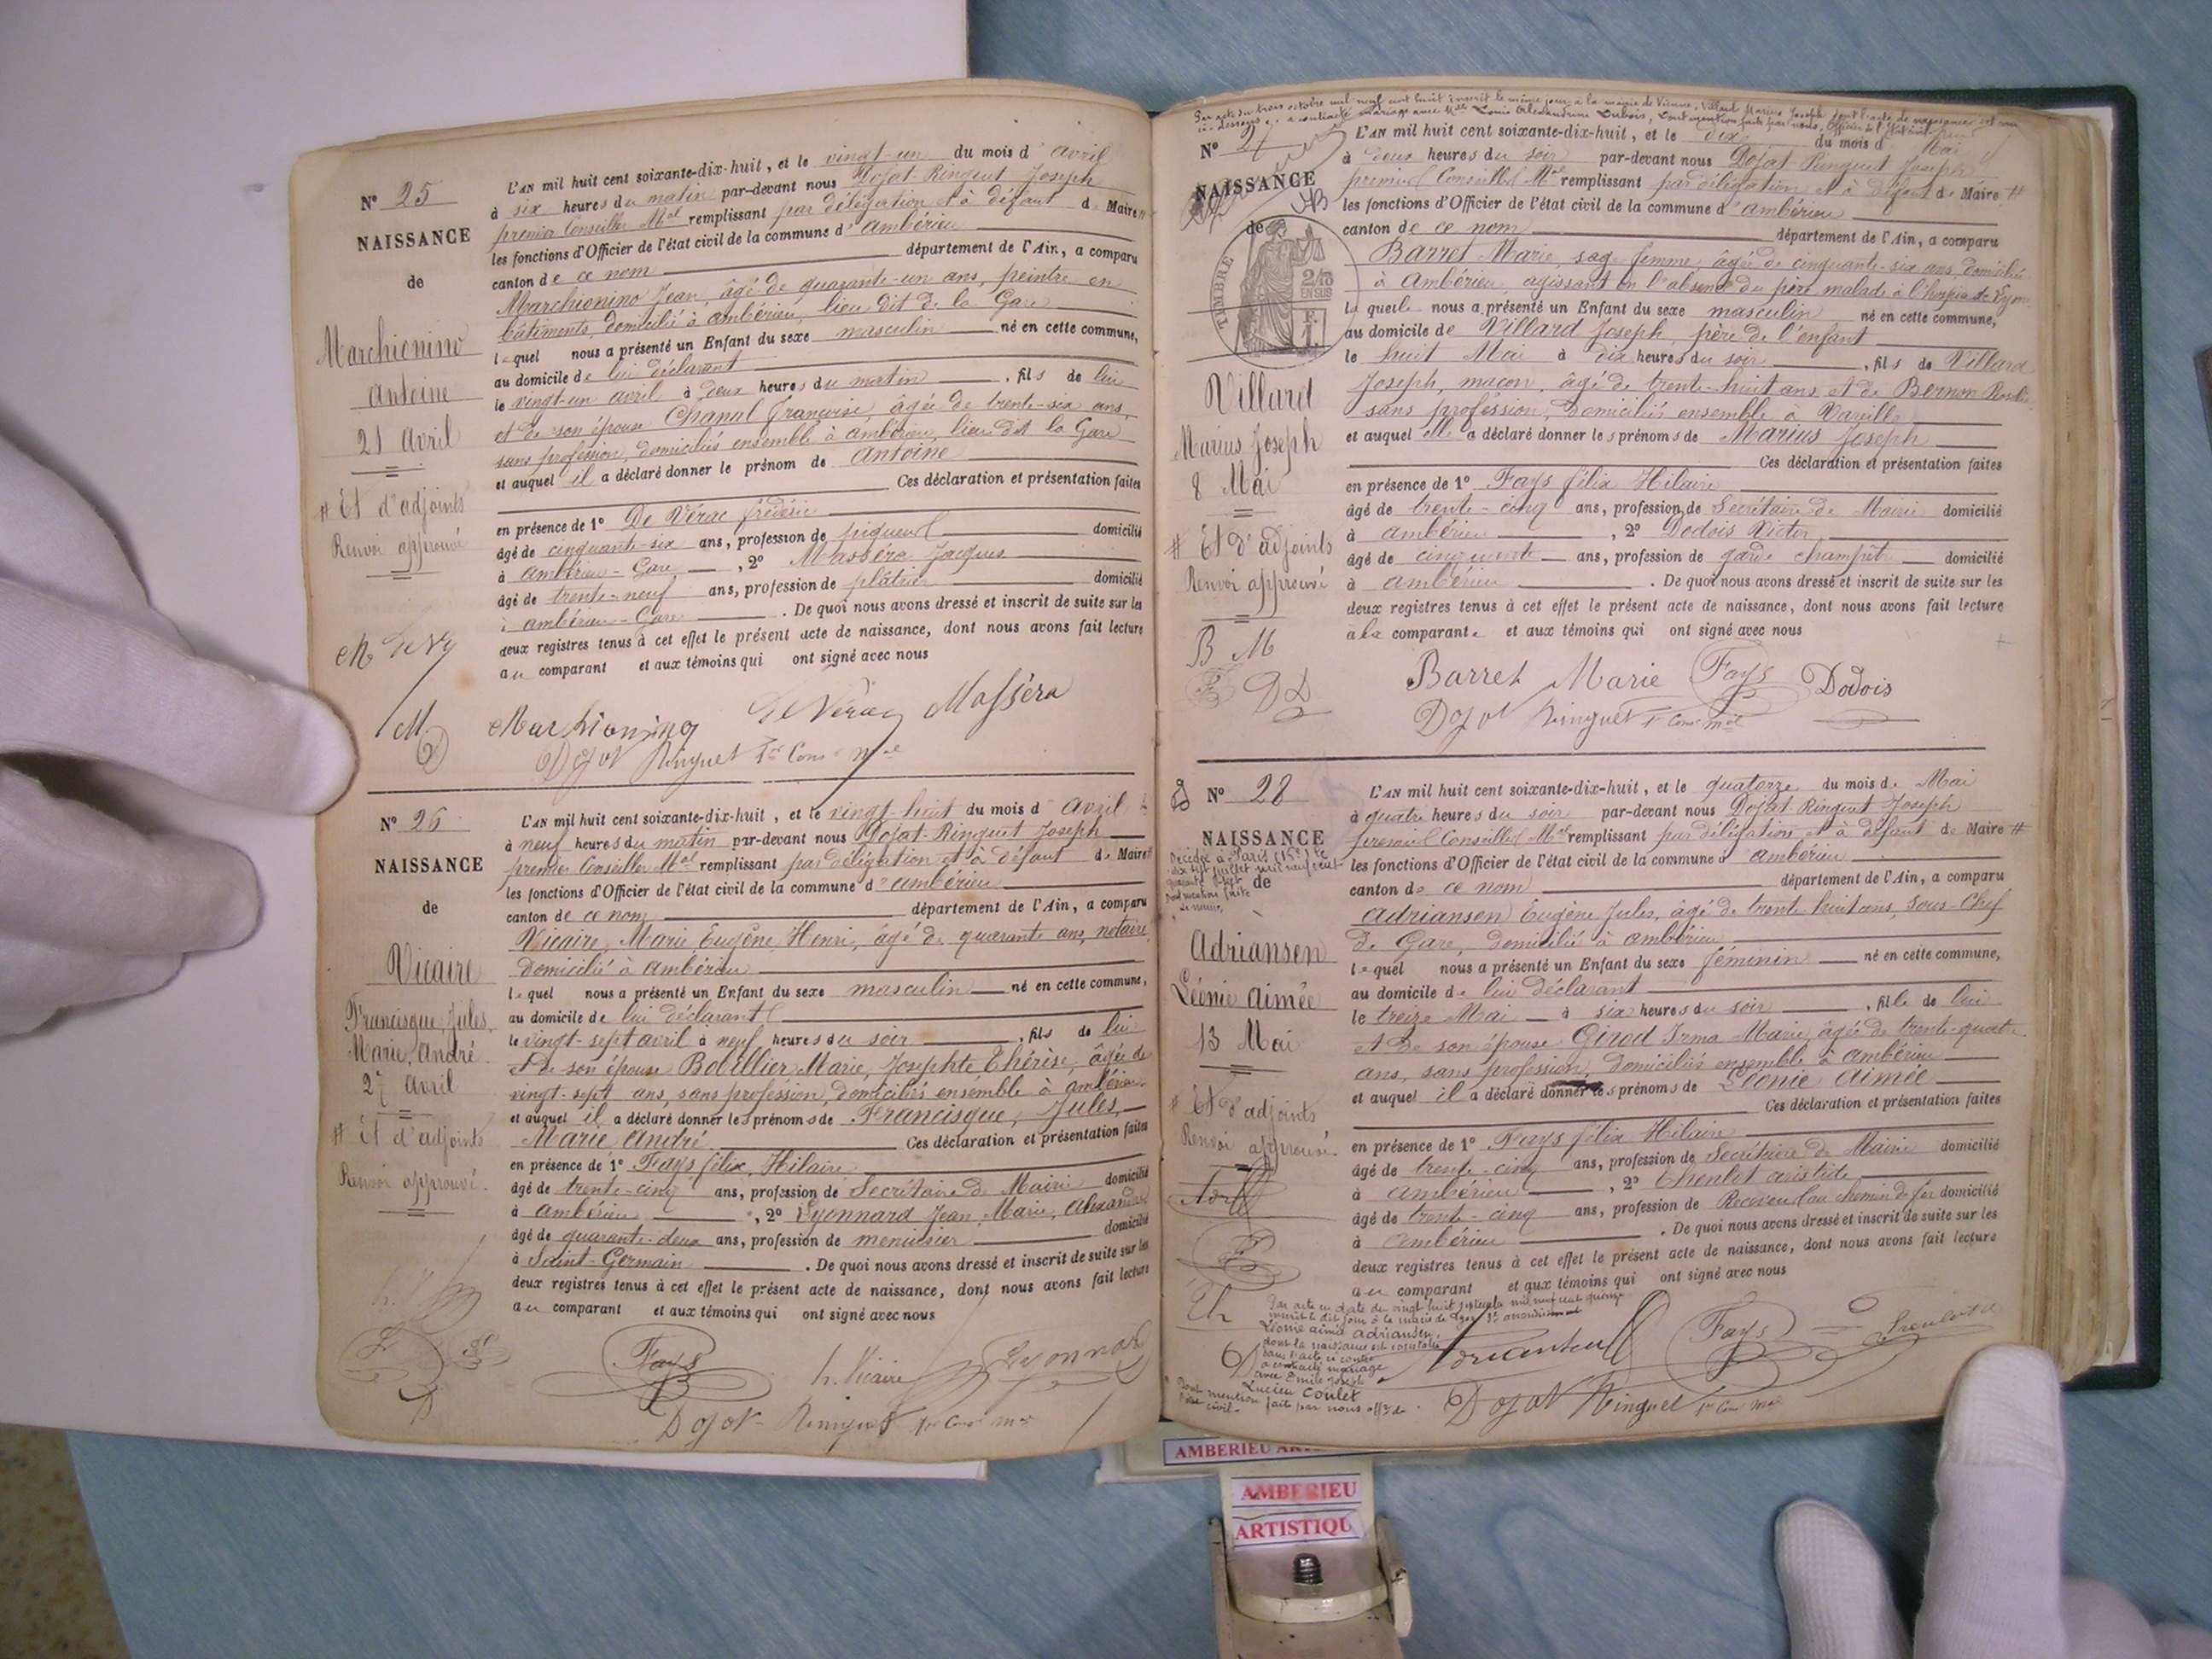 Nº 25
NAISSANCE
de
Marchionino
Antoine
21 Avril
# Et d'adjoints
Renvoi approuvé
L'AN mil huit cent soixante-dix-huit, et le vingt-un du mois d'avril
à six heures du matin par-devant nous Dojat-Ringuet Joseph
premier Conseiller Mal remplissant par délégation et à défaut de Maire #
les fonctions d'Officier de l'état civil de la commune d'ambérieu
canton de ce nom département de l'Ain, a comparu
Marchionino Jean, âgé de quarante-un ans, peintre en
bâtiments, domicilié à ambérieu, lieu dit de la Gare
lequel nous a présenté un Enfant du sexe masculin né en cette commune,
au domicile de lui déclarant
le vingt-un avril à deux heures du matin, fils de lui
et de son épouse Chanal Françoise, âgée de trente-six ans,
sans profession, domiciliés ensemble à ambérieu, lieu dit la Gare
et auquel il a déclaré donner le prénom de Antoine
Ces déclaration et présentation faites
en présence de 1º De Vérac frédéric
âgé de cinquante-six ans, profession de piqueur domicilié
à ambérieu-Gare, 2º Masséra Jacques
âgé de trente-neuf ans, profession de plâtrier domicilié
à ambérieu-Gare. De quoi nous avons dressé et inscrit de suite sur les
deux registres tenus à cet effet le présent acte de naissance, dont nous avons fait lecture
au comparant et aux témoins qui ont signé avec nous
Marchionino De Vérac Masséra
Dojat Ringuet 1er Cons mal
Nº 26
NAISSANCE
de
Vicaire
Francisque, Jules,
Marie, André
27 avril
# Et d'adjoints
Renvoi approuvé.
L'AN mil huit cent soixante-dix-huit, et le vingt-huit du mois d'avril
à neuf heures du matin par-devant nous Dojat-Ringuet Joseph
premier Conseiller Mal remplissant par délégation et à défaut de Maire #
les fonctions d'Officier de l'état civil de la commune d'ambérieu
canton de ce nom département de l'Ain, a comparu
Vicaire, Marie Eugène Henri, âgé de quarante ans, notaire,
domicilié à ambérieu
lequel nous a présenté un Enfant du sexe masculin né en cette commune,
au domicile de lui déclarant
le vingt-sept avril à neuf heures du soir, fils de lui
et de son épouse Bobillier Marie, Josephte Thérèse, âgée de
vingt-sept ans, sans profession, domiciliés ensemble à ambérieu
et auquel il a déclaré donner les prénoms de Francisque, Jules,
Marie André Ces déclaration et présentation faites
en présence de 1º Fays félix, Hilaire
âgé de trente-cinq ans, profession de Secrétaire de Mairie domicilié
à ambérieu, 2º Lyonnard Jean, Marie, Alexandre
âgé de quarante-deux ans, profession de menuisier domicilié
à Saint-Germain. De quoi nous avons dressé et inscrit de suite sur les
deux registres tenus à cet effet le présent acte de naissance, dont nous avons fait lecture
au comparant et aux témoins qui ont signé avec nous
Fays h. Vicaire Lyonnard
Dojat-Ringuet 1er Cons mal
Par acte du trois octobre mil neuf cent huit inscrit le même jour à la mairie de Vienne, Villard Marius Joseph dont l'acte de naissance est
ci-dessous, a contracté mariage avec Mlle Dubois, Dont mention faite par nous, Officier de l'Etat civil
Nº 27
NAISSANCE
de
TIMBRE
2/10
EN SUS
Villard
Marius Joseph
8 Mai
# Et d'adjoints
Renvoi approuvé
B M
L'AN mil huit cent soixante-dix-huit, et le dix du mois d Mai
à deux heures du soir par-devant nous Dojat-Ringuet Joseph
premier Conseiller Mal remplissant par délégation et à défaut de Maire #
les fonctions d'Officier de l'état civil de la commune d'ambérieu
canton de ce nom département de l'Ain, a comparu
Barret Marie, sage femme, âgée de cinquante-six ans, domiciliée
à Ambérieu, agissant en l'absence du père malade à l'hospice de Lyon
laquelle nous a présenté un Enfant du sexe masculin né en cette commune,
au domicile de Villard Joseph, père de l'enfant
le huit Mai à dix heures du soir, fils de Villard
Joseph, maçon, âgé de trente-huit ans et de Bernon
sans profession, domiciliés ensemble à Vareille
et auquel elle a déclaré donner les prénoms de Marius Joseph
Ces déclaration et présentation faites
en présence de 1º Fays félix Hilaire
âgé de trente-cinq ans, profession de Secrétaire de Mairie domicilié
à ambérieu, 2º Dodois Victor
âgé de cinquante ans, profession de garde champêtre domicilié
à ambérieu. De quoi nous avons dressé et inscrit de suite sur les
deux registres tenus à cet effet le présent acte de naissance, dont nous avons fait lecture
à la comparante et aux témoins qui ont signé avec nous
Barret Marie Fays Dodois
Dojat Ringuet 1er Cons mal
Nº 28
NAISSANCE
de
Décédée à Paris (15e) le
dix sept juillet mil neuf cent
quarante
Dont mention faite
Adriansen
Léonie Aimée
13 Mai
# Et d'adjoints
Renvoi approuvé.
L'AN mil huit cent soixante-dix-huit, et le quatorze du mois de Mai
à quatre heures du soir par-devant nous Dojat-Ringuet Joseph
premier Conseiller Mal remplissant par délégation et à défaut de Maire #
les fonctions d'Officier de l'état civil de la commune d'ambérieu
canton de ce nom département de l'Ain, a comparu
Adriansen Eugène Jules, âgé de trente-huit ans, Sous-Chef
de Gare, domicilié à ambérieu
lequel nous a présenté un Enfant du sexe féminin né en cette commune,
au domicile de lui déclarant
le treize Mai à six heures du soir, fille de lui
et de son épouse Girod Irma Marie, âgée de trente-quatre
ans, sans profession, domiciliés ensemble à ambérieu
et auquel il a déclaré donner les prénoms de Léonie Aimée
Ces déclaration et présentation faites
en présence de 1º Fays félix Hilaire
âgé de trente-cinq ans, profession de Secrétaire de Mairie domicilié
à ambérieu, 2º aristide
âgé de trente-cinq ans, profession de Receveur au chemin de fer domicilié
à ambérieu. De quoi nous avons dressé et inscrit de suite sur les
deux registres tenus à cet effet le présent acte de naissance, dont nous avons fait lecture
au comparant et aux témoins qui ont signé avec nous
Par acte en date du vingt huit septembre mil neuf cent quinze
inscrit le dit jour à la mairie de Lyon arrondissement
Léonie aimée adriansen,
dont la naissance est constatée
dans l'acte ci contre
a contracté mariage
avec Emile Joseph
Lucien Coulet
Dont mention faite par nous off. de
l'état civil.
Adriansen Fays
Dojat Ringuet 1er Cons mal
AMBERIEU
AMBERIEU
ARTISTIQU